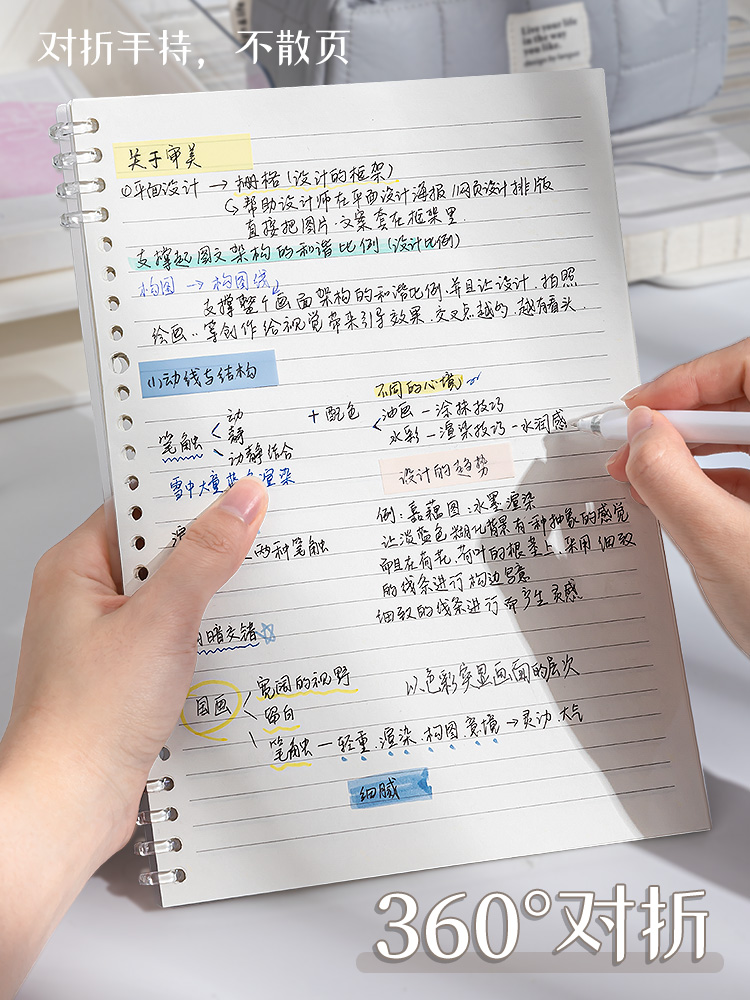 对折手持，不散页
Live your life
in the way
you like.
关于审美
①平面设计 → 栅格(设计的框架)
帮助设计师在平面设计海报/网页设计排版
直接把图片.文案套在框架里.
支撑起图文架构的和谐比例(设计比例)
构图 → 构图线
支撑整个画面架构的和谐比例.并且让设计.拍照
绘画..等创作给视觉带来引导效果.交叉点越的.越有看头.
(1)动线与结构
不同的心境
动
笔触 静 + 配色
动静结合
油画 — 涂抹技巧
水彩 — 渲染技巧 — 水润感
雪中大量蓝色渲染
设计的趋势
两种笔触
例:嘉藕图:水墨渲染
让淡蓝色糊化背景有一种抽象的感觉
而且在荷花.荷叶的根茎上.采用细致
的线条进行构边写意
细致的线条进行而产生灵感
暗交错
国画 宽阔的视野
留白
笔触 — 轻重.渲染.构图.意境 → 灵动.大气
以色彩突显画面的层次
细腻
360°对折